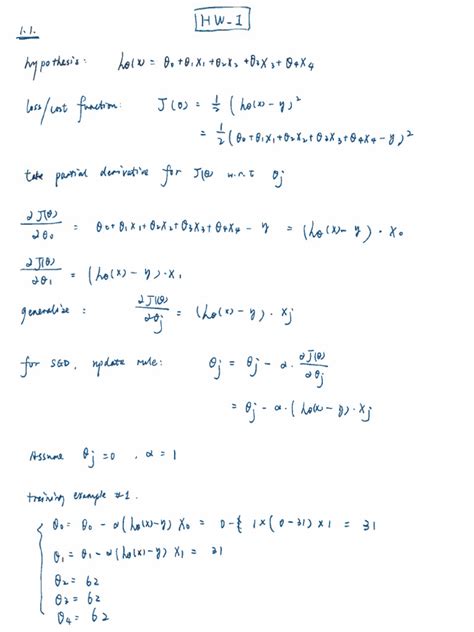 HW-1
1.1.
hypothesis: hθ(x) = θ0+θ1x1+θ2x2+θ3x3+θ4x4
loss/cost function: J(θ) = 1/2 (hθ(x)-y)²
= 1/2 (θ0+θ1x1+θ2x2+θ3x3+θ4x4-y)²
take partial derivative for J(θ) w.r.t θj
∂J(θ)/∂θ0 = θ0+θ1x1+θ2x2+θ3x3+θ4x4 - y = (hθ(x)-y)·x0
∂J(θ)/∂θ1 = (hθ(x)-y)·x1
generalize: ∂J(θ)/∂θj = (hθ(x)-y)·xj
for SGD, update rule: θj = θj - α·∂J(θ)/∂θj
= θj - α·(hθ(x)-y)·xj
Assume θj=0, α=1
training example #1.
θ0 = θ0 - α(hθ(x)-y) x0 = 0-{ 1×(0-31)×1 = 31
θ1 = θ1 - α(hθ(x)-y) x1 = 31
θ2 = 62
θ3 = 62
θ4 = 62